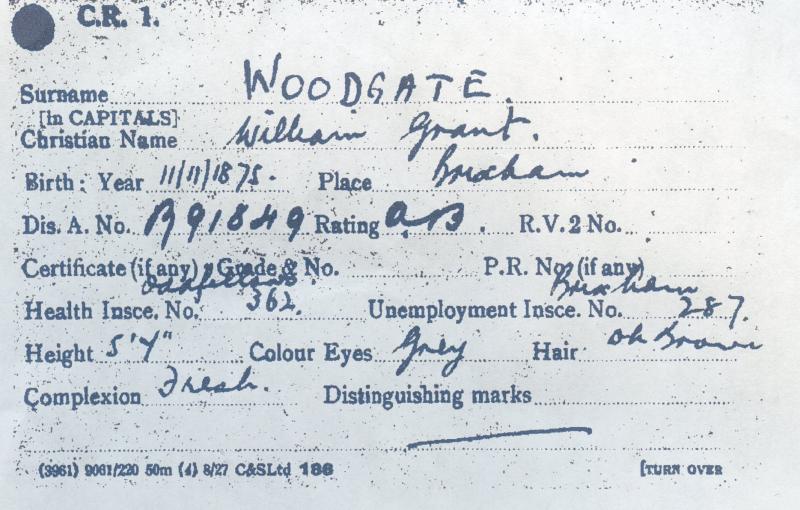 C.R. 1.
Surname WOODGATE.
[in CAPITALS]
Christian Name William Grant.
Birth: Year 11/11/1875. Place Brixham
Dis. A. No. R91849 Rating A.B. R.V.2 No.
Certificate (if any) Grade & No. P.R. No. (if any)
Oddfellows Brixham
Health Insce. No. 362. Unemployment Insce. No. 287.
Height 5'4" Colour Eyes Grey Hair Dk Brown
Complexion Fresh. Distinguishing marks
(3961) 9061/220 50m (4) 8/27 C&SLtd 188 [TURN OVER